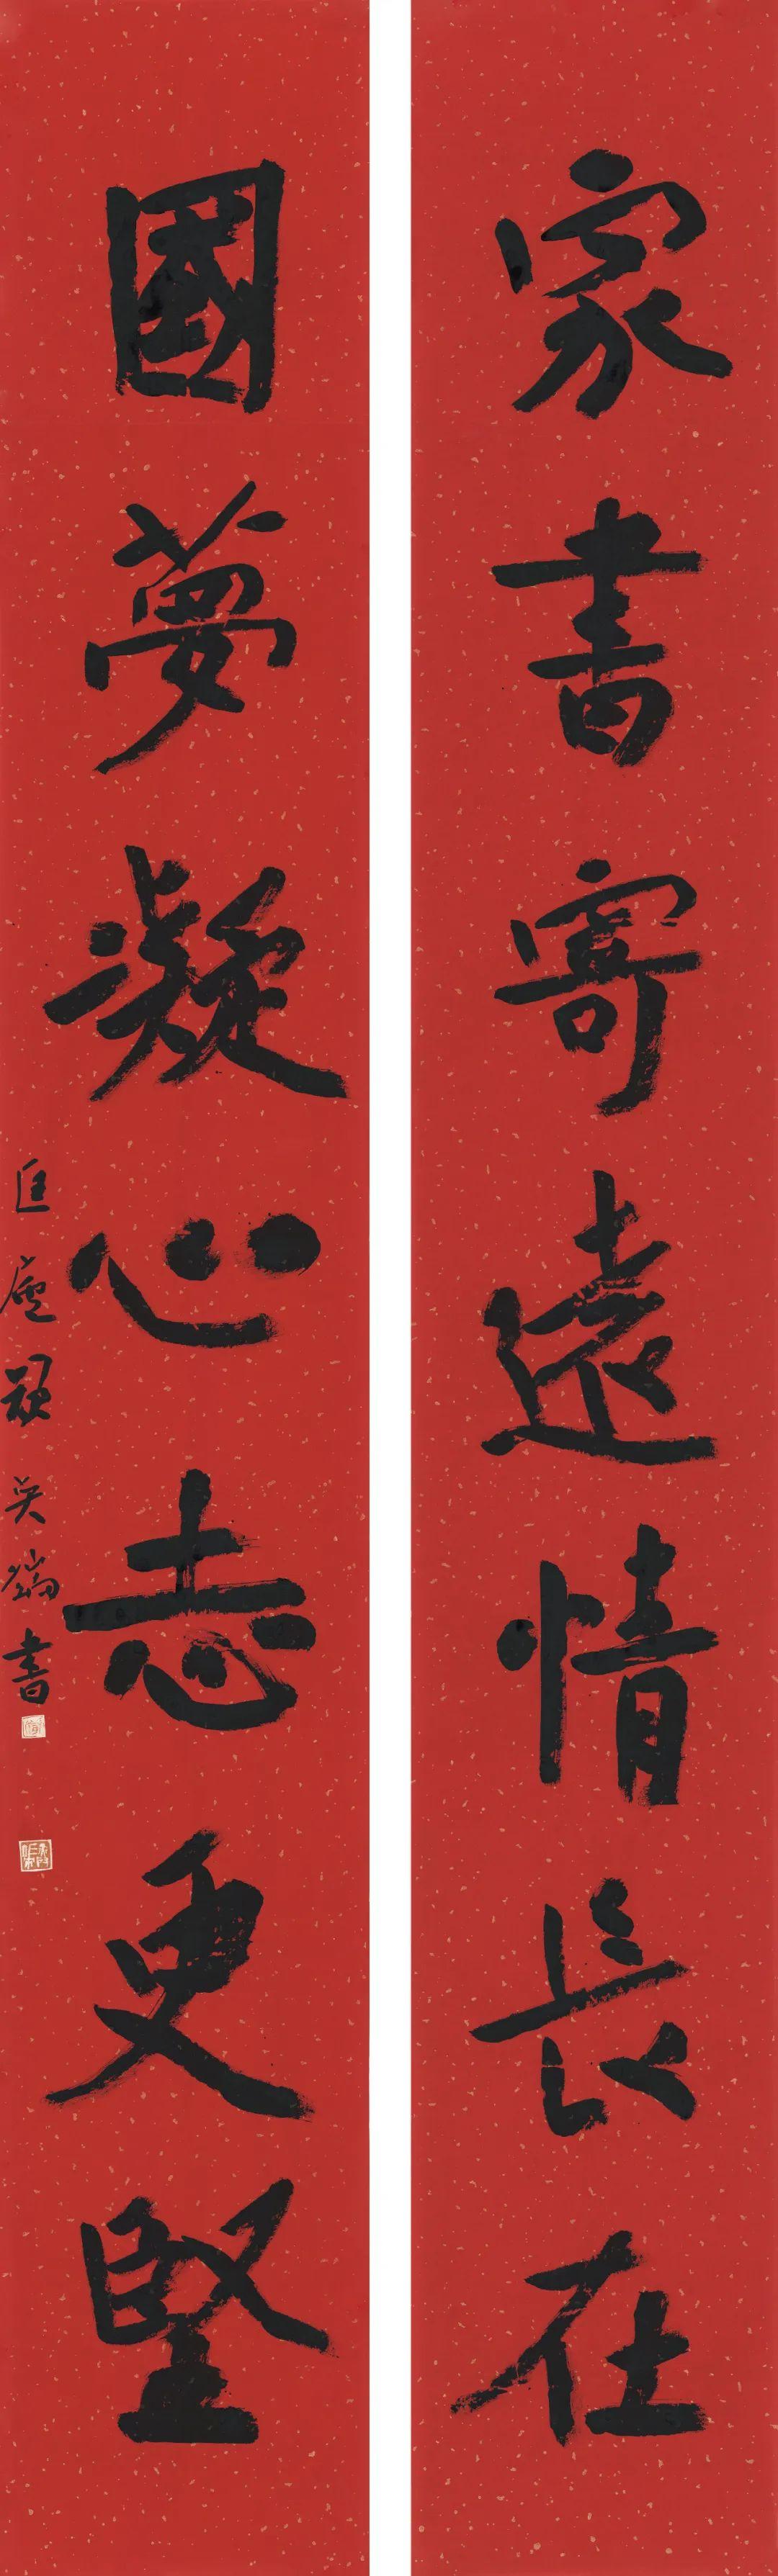 家書寄遠情長在
國夢凝心志更堅
匡廬
吳端書